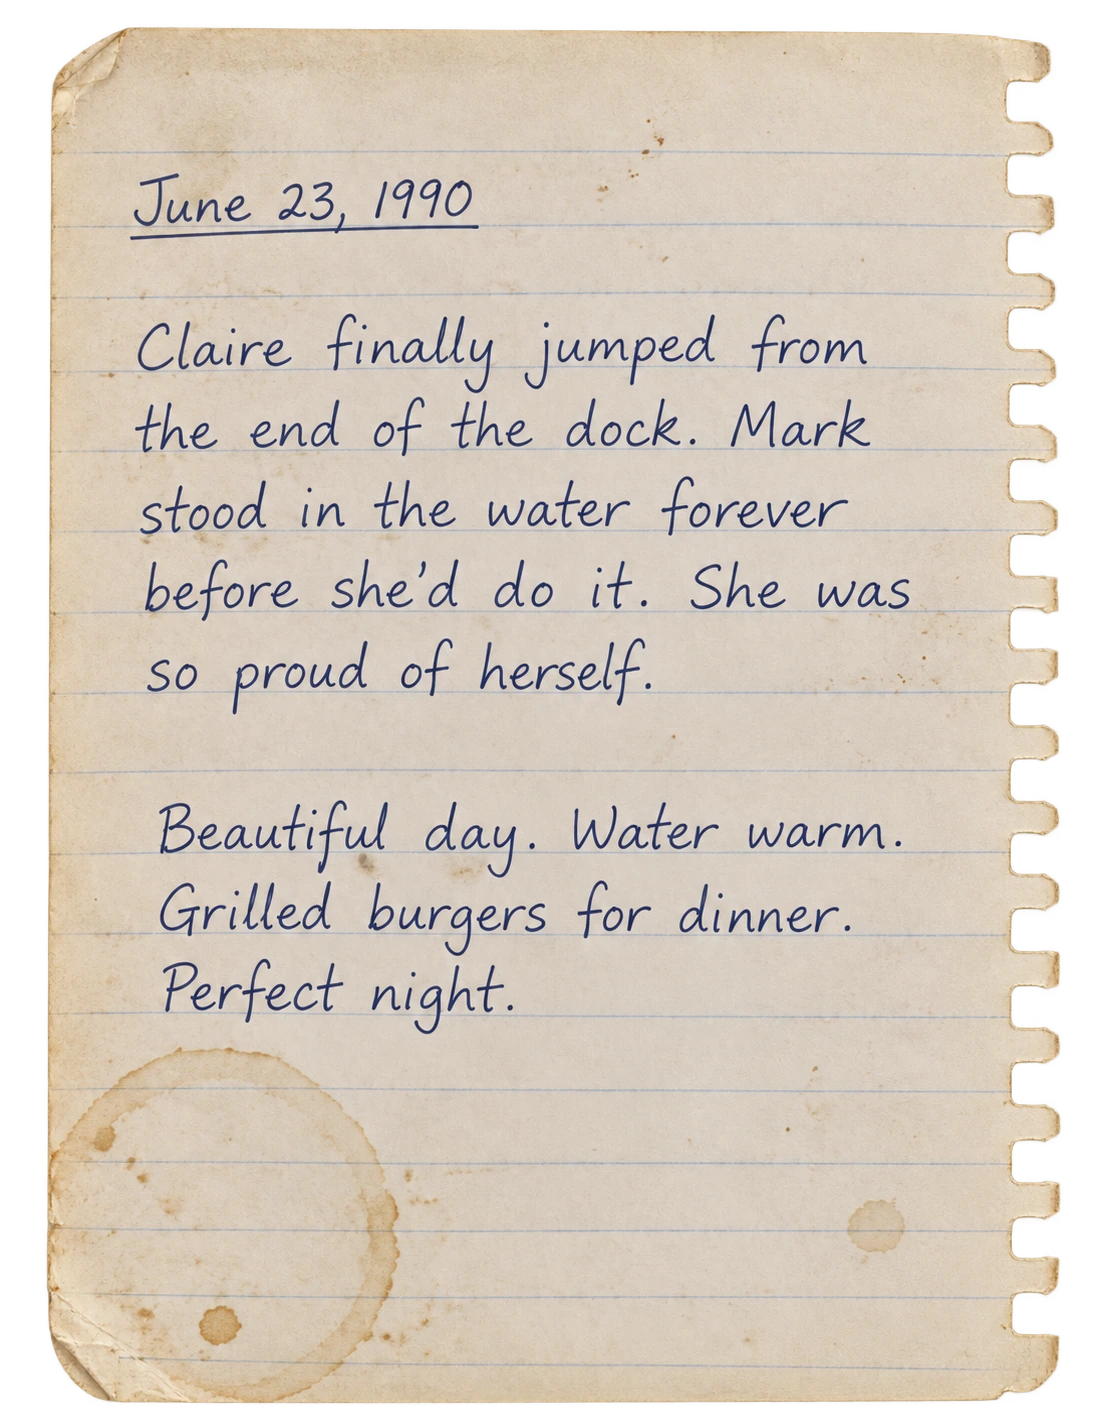 June 23, 1990
Claire finally jumped from
the end of the dock. Mark
stood in the water forever
before she'd do it. She was
so proud of herself.
Beautiful day. Water warm.
Grilled burgers for dinner.
Perfect night.